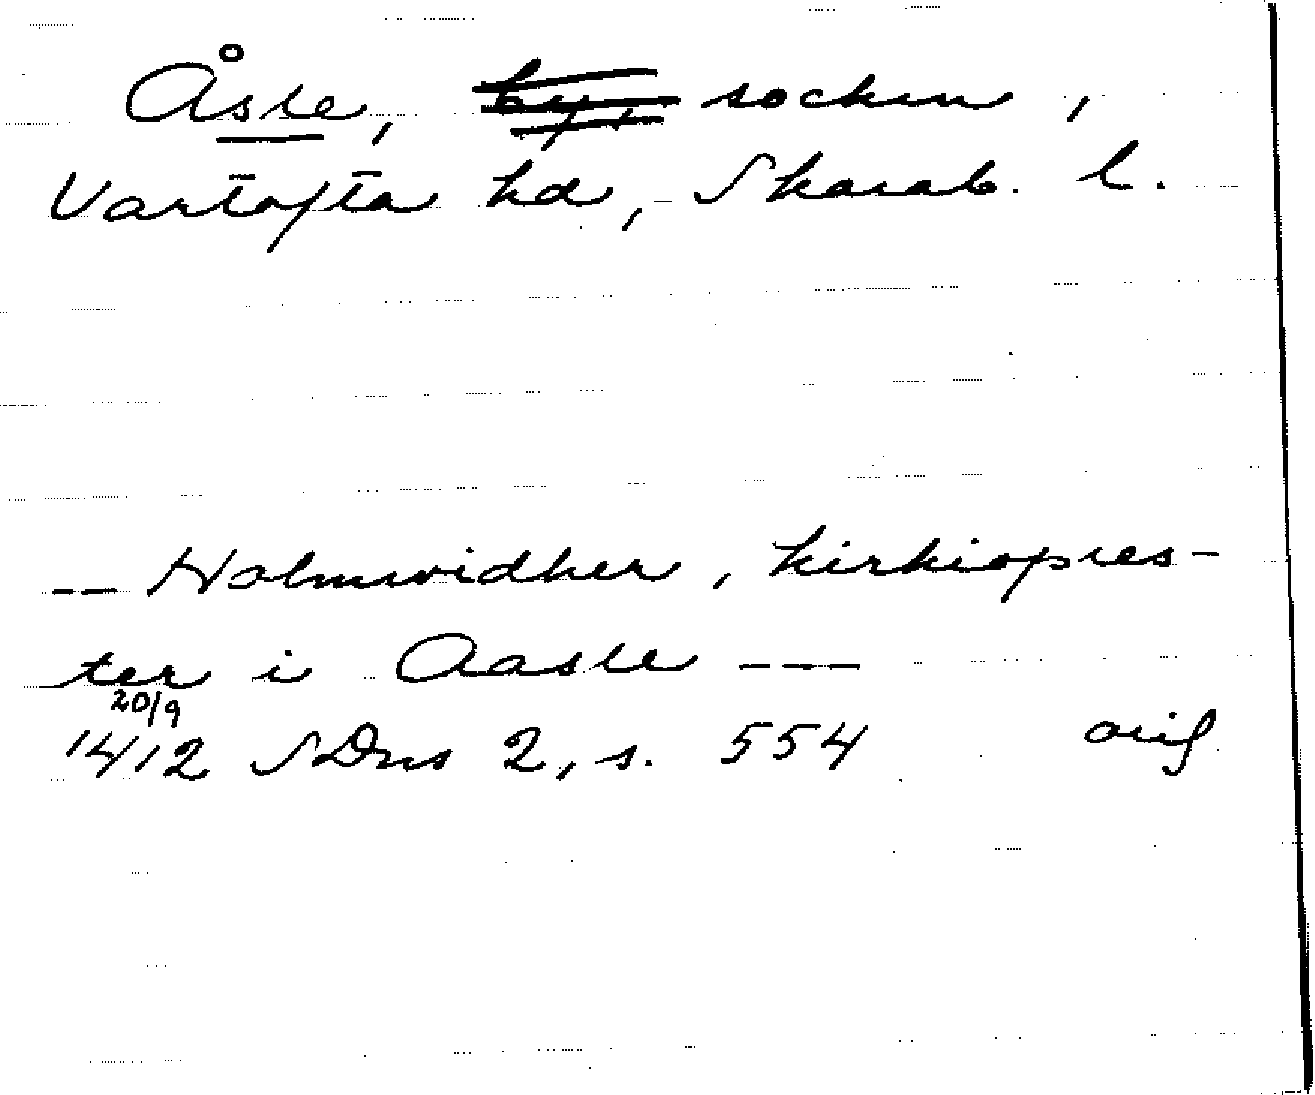 Åsle, socken,
Vartofta hd, Skarab. l.
-- Holmwidher, kirkiopres-
ter i Aasle ---
20/9
1412 SDns 2, s. 554 orig